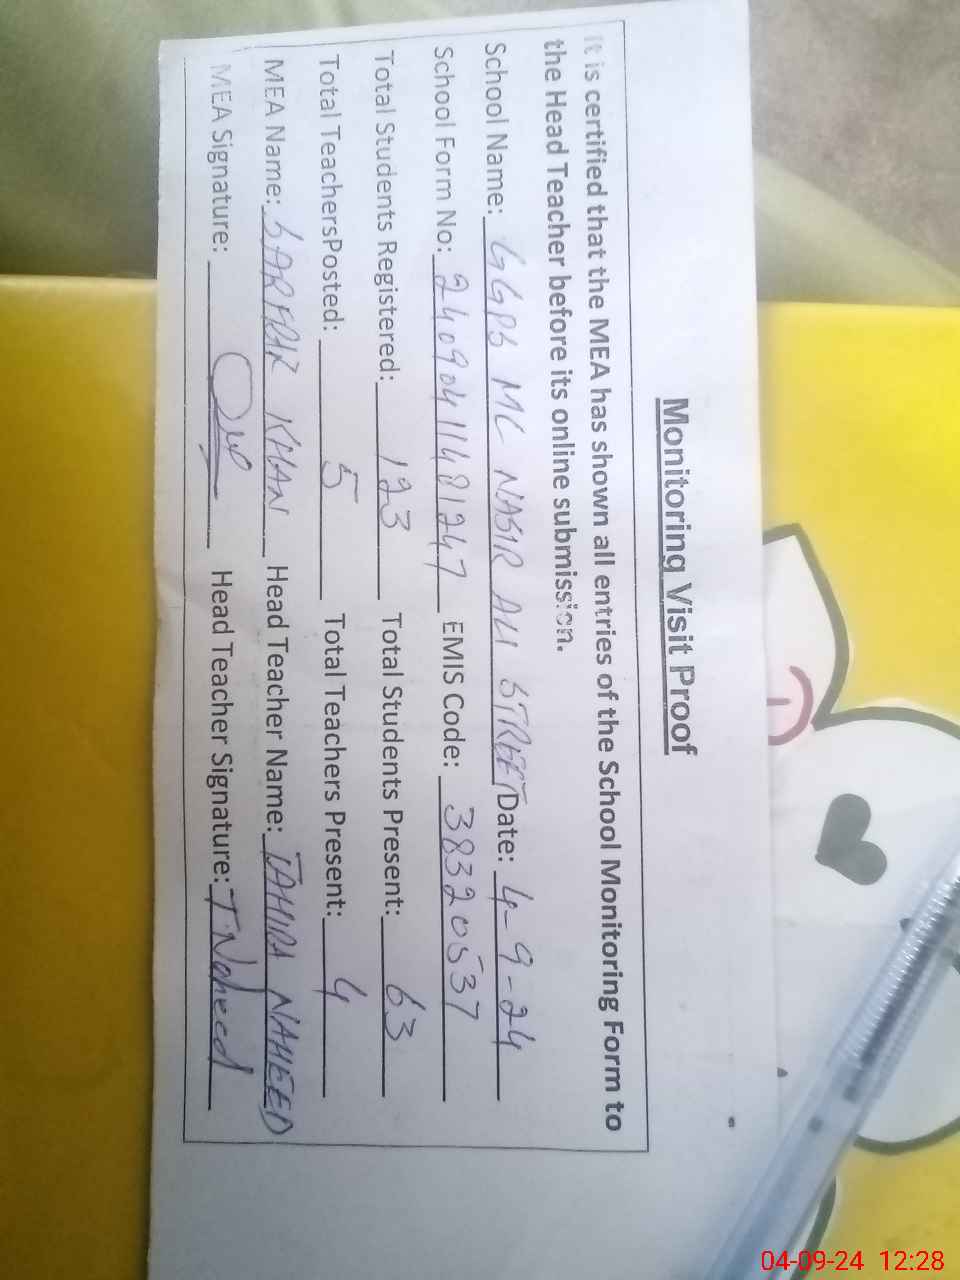 Monitoring Visit Proof
It is certified that the MEA has shown all entries of the School Monitoring Form to
the Head Teacher before its online submission.
School Name: GGPS MC NASIR ALI STREET Date: 4-9-24
School Form No: 24090411481247 EMIS Code: 38320537
Total Students Registered: 123 Total Students Present: 63
Total TeachersPosted: 5 Total Teachers Present: 4
MEA Name: SARFRAZ KHAN Head Teacher Name: TAHIRA NAHEED
MEA Signature: Head Teacher Signature: T.Naheed
04-09-24 12:28